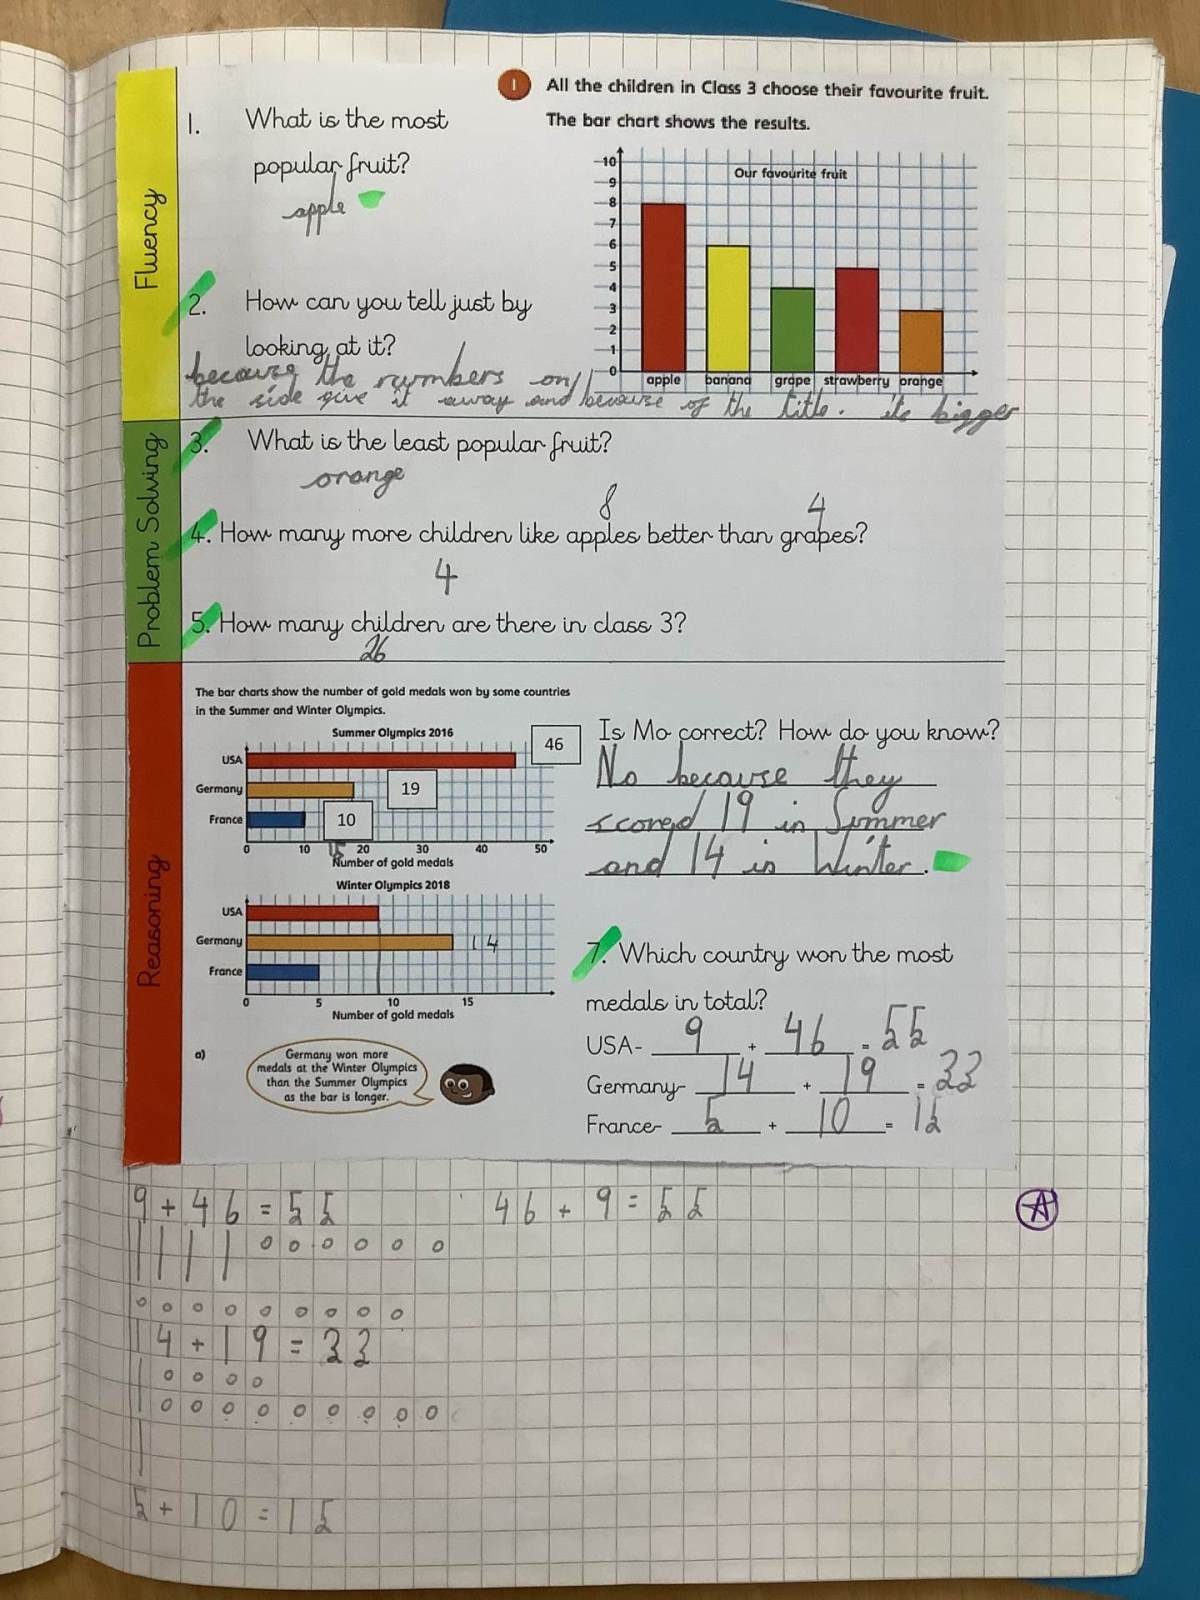 Fluency
1. What is the most
popular fruit?
apple
2. How can you tell just by
looking at it?
because the numbers on
the side give it away and because of the title. its bigger
1 All the children in Class 3 choose their favourite fruit.
The bar chart shows the results.
Our favourite fruit
10
9
8
7
6
5
4
3
2
1
0
apple banana grape strawberry orange
Problem Solving
3. What is the least popular fruit?
orange
8 4
4. How many more children like apples better than grapes?
4
5. How many children are there in class 3?
26
Reasoning
The bar charts show the number of gold medals won by some countries
in the Summer and Winter Olympics.
Summer Olympics 2016
USA 46
Germany 19
France 10
0 10 15 20 30 40 50
Number of gold medals
Winter Olympics 2018
USA
Germany 14
France
0 5 10 15
Number of gold medals
a) Germany won more
medals at the Winter Olympics
than the Summer Olympics
as the bar is longer.
Is Mo correct? How do you know?
No because they
scored 19 in Summer
and 14 in Winter.
7. Which country won the most
medals in total?
USA- 9 + 46 = 55
Germany- 14 + 19 = 33
France- 5 + 10 = 15
9 + 46 = 55 46 + 9 = 55
A
14 + 19 = 33
5 + 10 = 15